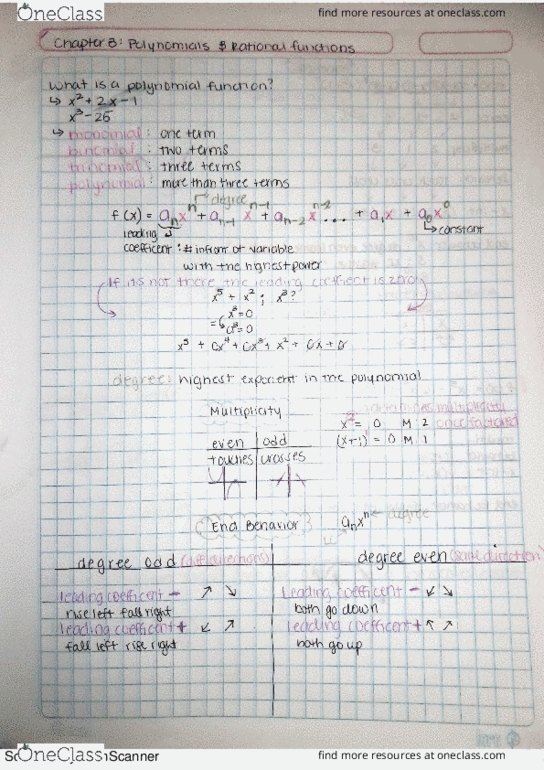 OneClass
find more resources at oneclass.com
Chapter 3: Polynomials & Rational functions
What is a polynomial function?
↳ x² + 2x - 1
x³ - 25
↳ monomial: one term
binomial: two terms
trinomial: three terms
polynomial: more than three terms
degree
f(x) = aₙxⁿ + aₙ₋₁ xⁿ⁻¹ + aₙ₋₂ xⁿ⁻² ... + a₁x + a₀x⁰
leading → constant
coefficent: # infront of variable
with the highest power
If its not there the leading coeffiect is zero
x⁵ + x²; x³?
x³=0
x⁵ + 0x⁴ + 0x³ + x² + 0x + 0
degree: highest exponent in the polynomial
Multiplicity
multiplicity
x² = 0 M 2
(x+1) = 0 M 1
even | odd
touches | crosses
End Behavior aₙxⁿ ← degree
degree odd
degree even (same direction)
leading coefficent - ↗ ↘
rise left fall right
leading coefficent + ↙ ↗
fall left rise right
leading coefficent - ↙ ↘
both go down
leading coefficent + ↖ ↗
both go up
OneClass
Scanner
find more resources at oneclass.com